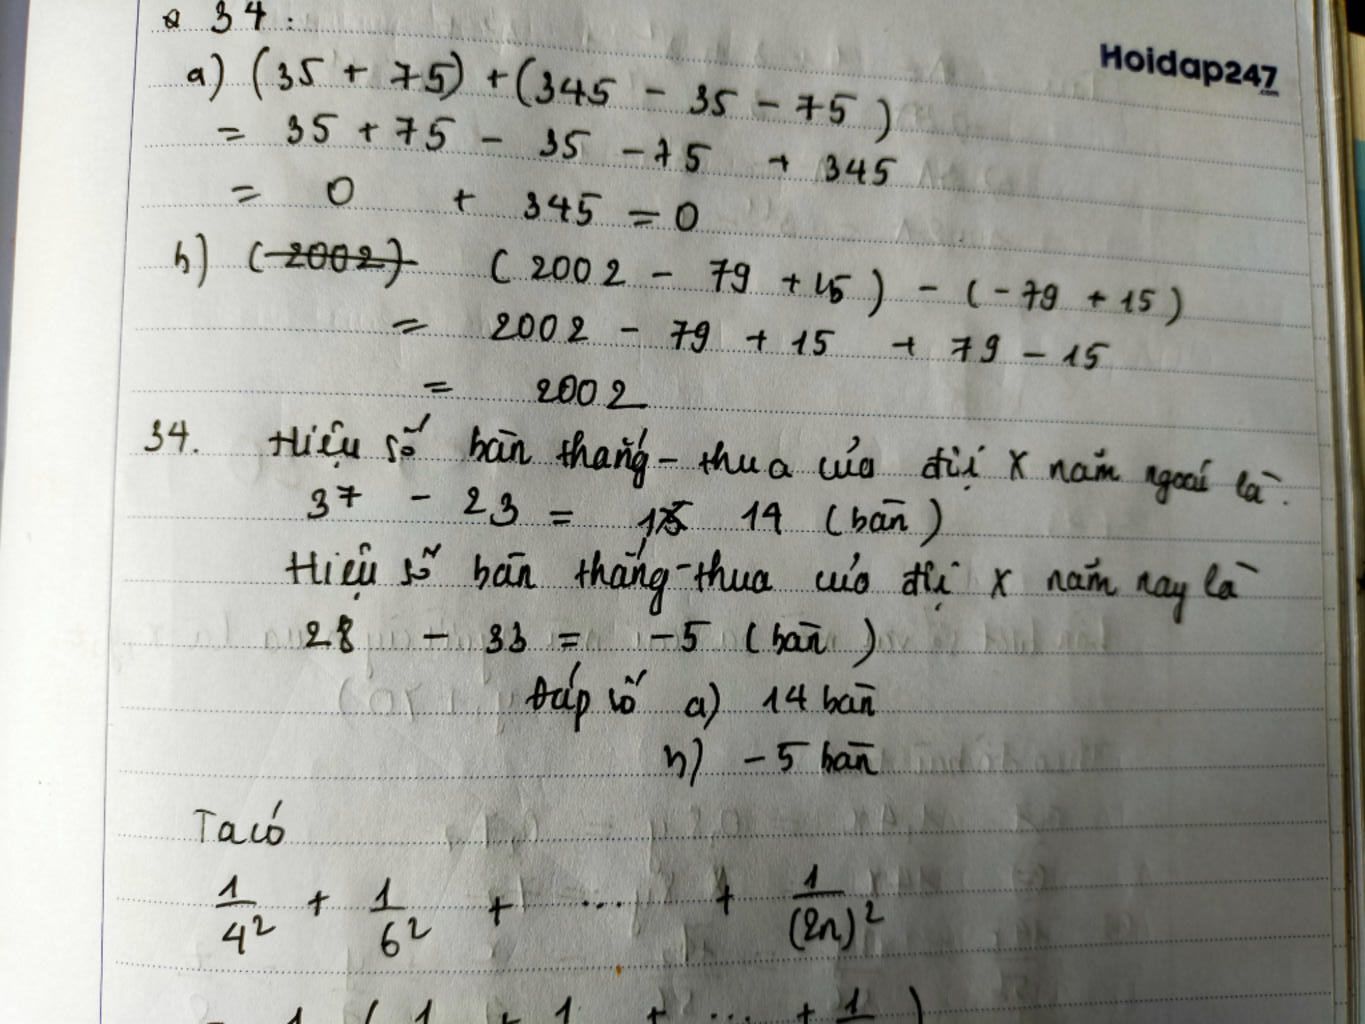 34:
Hoidap247
.com
a) (35 + 75) + (345 - 35 - 75)
= 35 + 75 - 35 - 75 + 345
= 0 + 345 = 0
b) (-2002) (2002 - 79 + 15) - (-79 + 15)
= 2002 - 79 + 15 + 79 - 15
= 2002
34. Hiệu số bàn thắng - thua của đội X năm ngoái là.
37 - 23 = 15 14 (bàn)
Hiệu số bàn thắng - thua của đội X năm nay là
28 - 33 = -5 (bàn)
Đáp số a) 14 bàn
b) -5 bàn
Ta có
1/4² + 1/6² + ... + 1/(2n)²